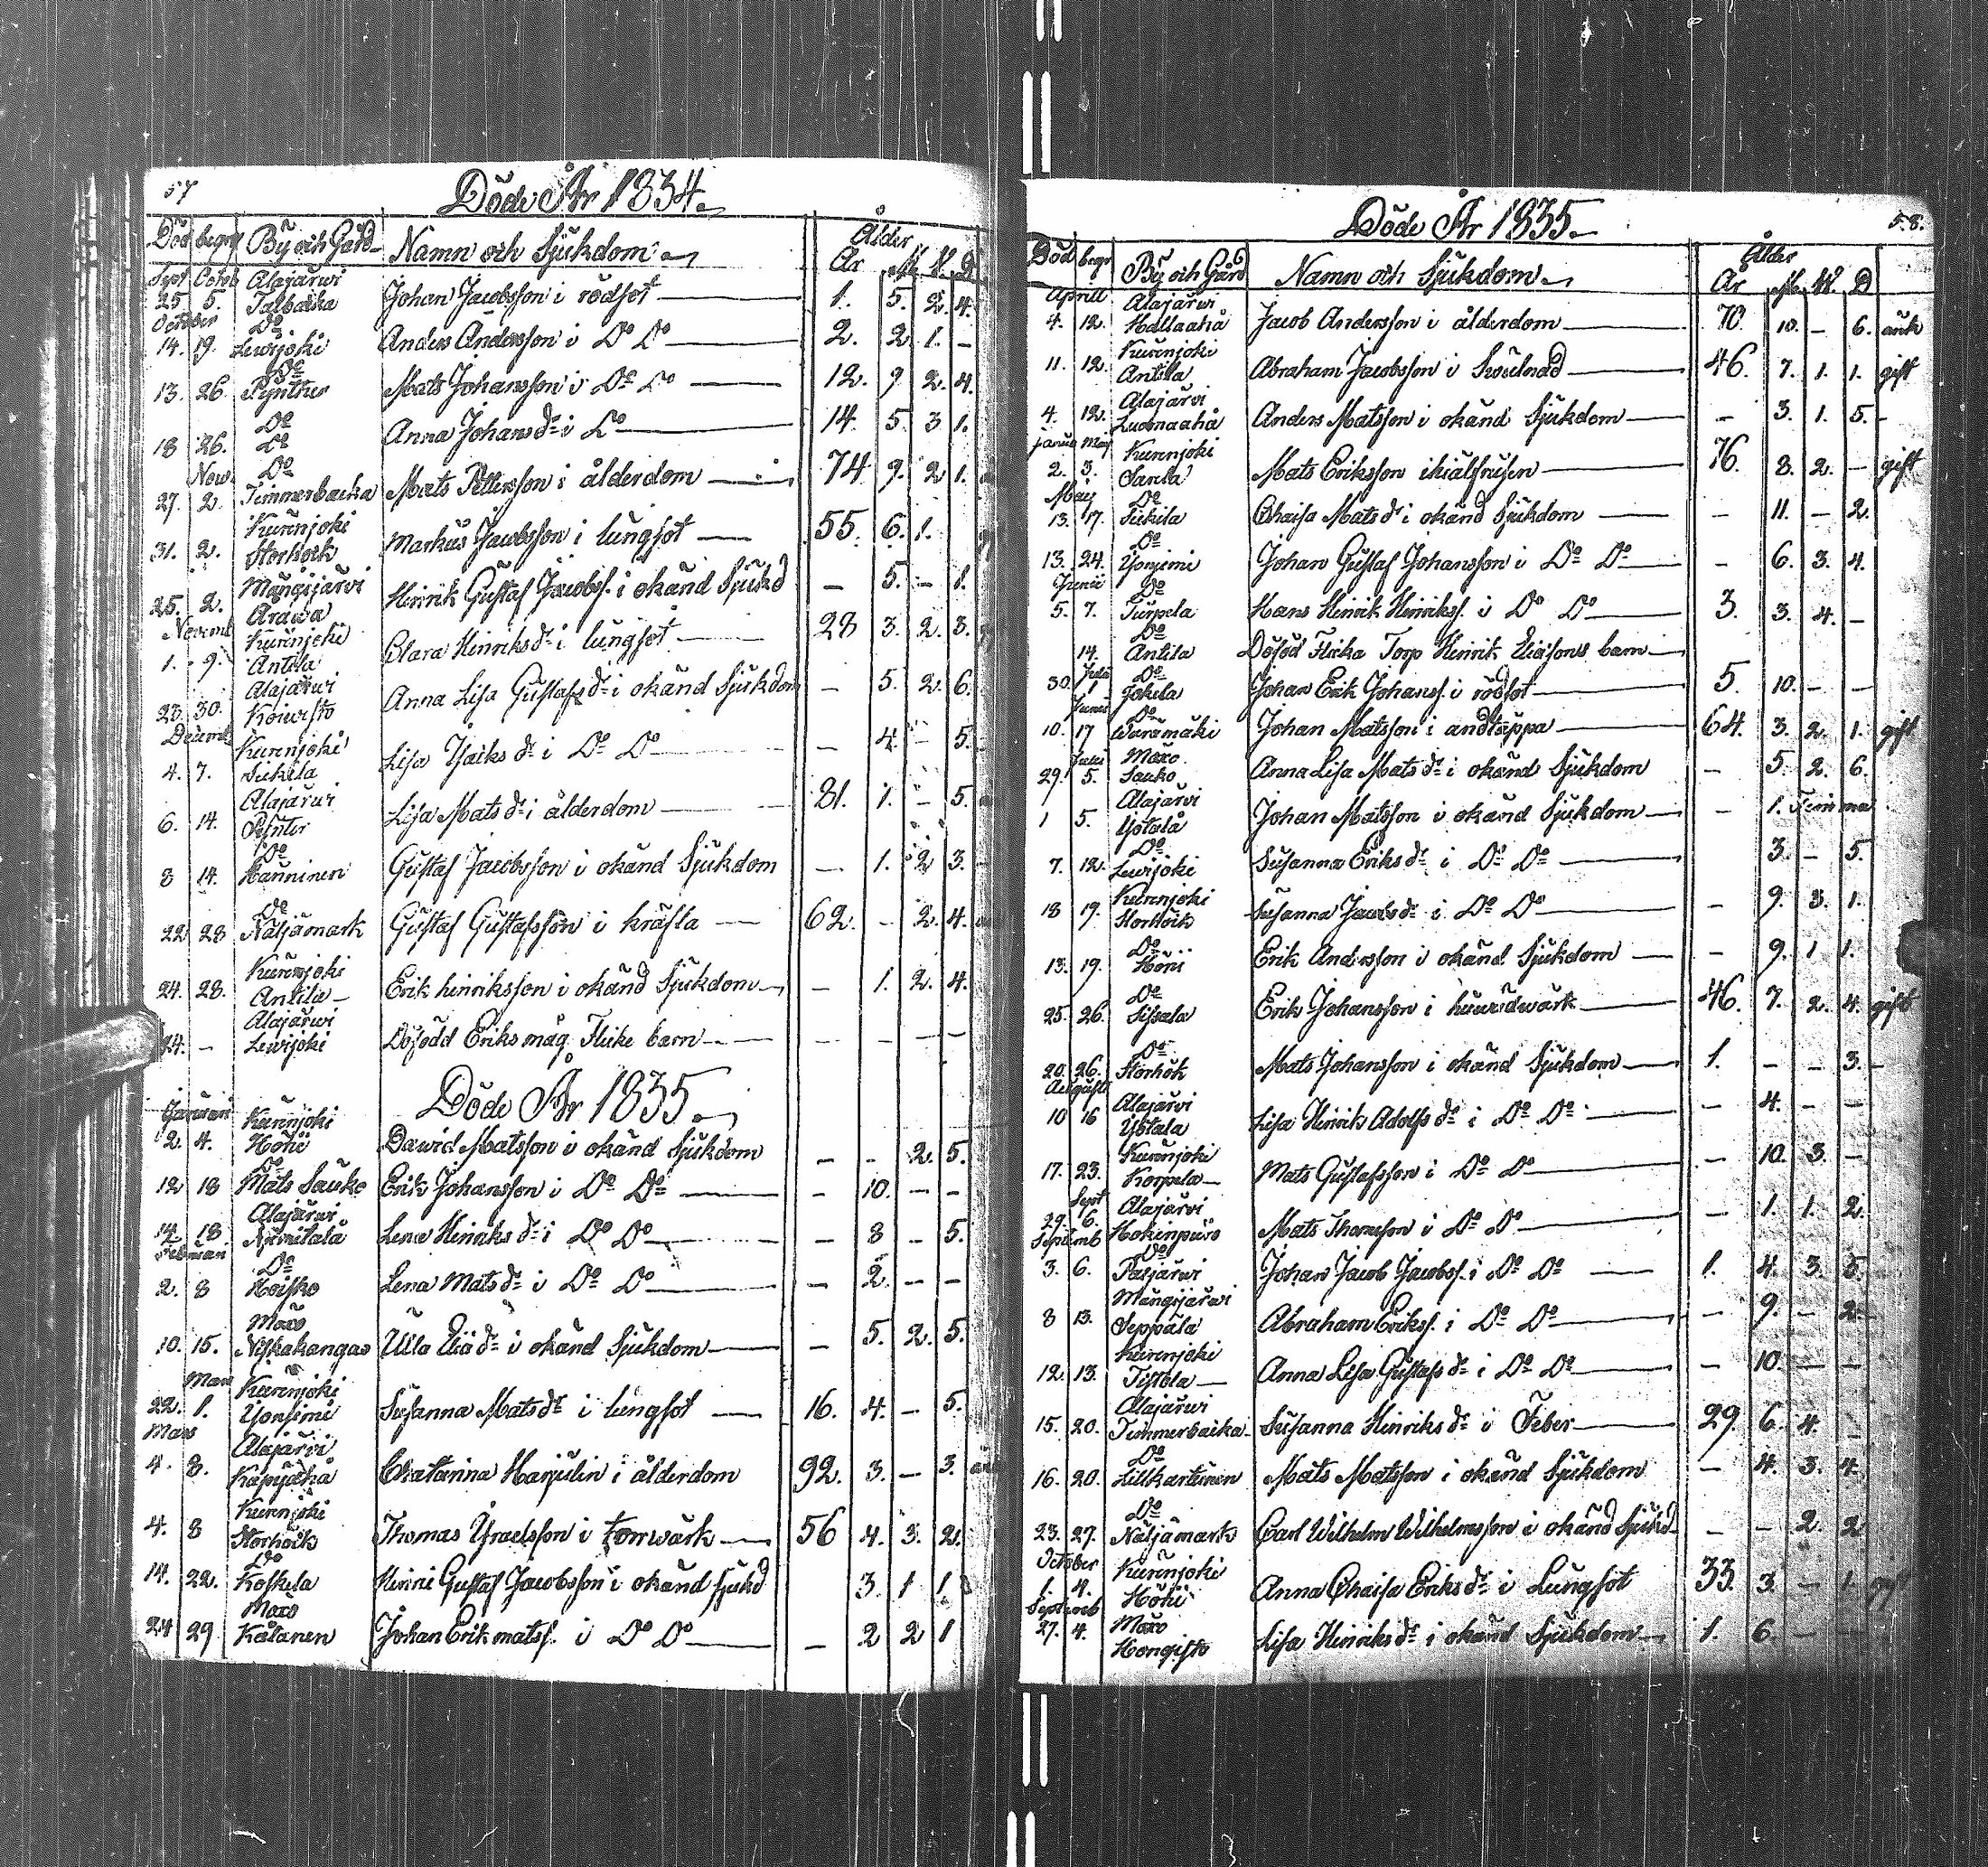 57
Döde År 1834.
Död begr By och Gård Namn och Sjukdom Ålder
År M. W. D
Sept Octob Alajärwi
25 5. Talbacka Johan Jacobsson i rödsot 1. 5. 2. 4.
October Do
14. 19. Lewijoki Anders Andersson i Do Do 2. 2 1. -
Do
13. 26. Pynttres Mats Johansson i Do Do 12. 9 2. 4.
Do
18 26. Do Anna Johans dr i Do 14. 5. 3 1.
Now. Do
27. 2. Timmerbacka Mats Pettersson i ålderdom 74 9. 2 1.
Kurenjoki
31. 2. Storhöök Markus Jacobsson i lungsot 55. 6. 1.
Mängijärvi
25. 2. Arawa Hinrik Gustaf Jacobss. i okänd Sjukd - 5. - 1.
Novemb Kurenjoki
1. 9. Antila Clara Hinriks dr i lungsot 28 3. 2. 3.
Alajärwi
23. 30. Koiwisto Anna Lisa Gustafs dr i okänd Sjukdom - 5. 2. 6.
Decemb Kurenjoki
4. 7. Pekkla Lisa Isaks dr i Do Do - 4. - 5.
Alajärwi
6. 14. Pynter Lisa Mats dr i ålderdom 81. 1. - 5.
Do
8 14. Hänninen Gustaf Jacobsson i okänd Sjukdom - 1. 2 3.
Do
22 28 Näljämark Gustaf Gustafsson i kräfta 62. - 2. 4.
Kurenjoki
24. 28. Antila Erik hinriksson i okänd Sjukdom - 1. 2. 4.
Alajärwi
24. - Lewijoki Döfödd Eriks mag. Flicke barn - - - -
Döde År 1835
Januari Kurenjoki
2. 4. Höhi Dawid Matsson i okänd Sjukdom - - 2. 5.
Do
12 18 Mats Sauko Erik Johansson i Do Do - 10. - -
Alajärwi
14. 18. Lena Hinriks dr i Do Do - 8 - 5.
Februari Do
2. 8 Hoisko Lena Mats dr i Do Do - 2. - -
Möxo
10. 15. Nyskakangas Ulla Eliä dr i okänd Sjukdom - 5. 2. 5.
Mars Kurenjoki
22. 1. Yonsimi Susanna Mats dr i lungsot 16. 4. - 5.
Mars Alajärvi
4. 8. Käpyähå Chatarina Harjulin i ålderdom 92. 3. - 3.
Kurenjoki
4. 8 Storhöök Thomas Ysraelsson i torrwärk 56 4. 3. 2.
Do
14. 22. Koskela Hinric Gustaf Jacobsson i okänd sjukd 3. 1 1.
Möxo
24 29 Kälänen Johan Erik matss. i Do Do - 2 2 1
58.
Döde År 1835
Död begr By och Gård Namn och Sjukdom Ålder
År M. W. D
Aprill Alajärvi
4. 12. Hallaahå Jacob Andersson i ålderdom 70. 10. - 6. änk
Kurenjoki
11. 12. Antila Abraham Jacobsson i 46. 7. 1. 1. gift
Alajärvi
4. 12. Luomaahå Anders Matsson i okänd Sjukdom - 3. 1. 5. -
Janua May Kurenjoki
2. 3. Sanla Mats Eriksson ihiälfrusen 76. 8. 2. - gift
Maij Do
13. 17. Pekkla Chaisa Mats dr i okänd Sjukdom - 11. - 2.
Do
13. 24. Yonsimi Johan Gustaf Johansson i Do Do - 6. 3. 4.
Junii Do
5. 7. Turpela Hans Hinrik Hinrikss. i Do Do 3. 3. 4. -
Do
14. Antila Döföd Flicka Torp Hinrik Eliassons barn
Julii Do
30. 1 Jokela Johan Erik Johanss. i rödsot 5. 10. - -
Junii Do
10. 17 Waramäki Johan Matsson i andtäppa 64. 3. 2. 1. gift
Julii Möxo
29. 5. Sauko Anna Lisa Mats dr i okänd Sjukdom - 5. 2. 6.
Alajärvi
1 5. Yotala Johan Matsson i okänd Sjukdom - 1. Timma
Do
7. 12. Lewijoki Susanna Eriks dr i Do Do 3. - 5.
Kurenjoki
18 19. Storhöök Susanna Jacobs dr i Do Do - 9. 3. 1.
Do
13. 19. Höhi Erik Andersson i okänd Sjukdom - 9. 1 1.
Do
25. 26. Sissala Erik Johansson i hufwudwärk 46. 7. 2. 4. gift
Do
20. 26. Storhök Mats Johansson i okänd Sjukdom 1. - - 3.
Augusti Alajärvi
10 16 Yotala Lisa Hinrik Adolfs dr i Do Do - 4. - -
Kurenjoki
17. 23. Korpela Mats Gustafsson i Do Do - 10. 3. -
Sept Alajärvi
29. 6. Hokinpuro Mats Thomsson i Do Do - 1. 1. 2.
Septemb Do
3. 6. Pasjärwi Johan Jacob Jacobss. i Do Do 1. 4. 3. 5.
Mängijärwi
8 13. Seppälä Abraham Erikss. i Do Do - 9. - 2.
Kurenjoki
12. 13. Tistola Anna Lisa Gustafs dr i Do Do - 10. - -
Alajärwi
15. 20. Timmerbacka Susanna Hinriks dr i Feber 29. 6. 4. -
Do
16. 20. Lillkartunen Mats Matsson i okänd Sjukdom - 4. 3. 4.
Do
23. 27. Näljämark Carl Wilhelm Wilhelmsson i okänd Sjukd - - 2. 2
October Kurenjoki
1. 4. Höhi Anna Chaisa Eriks dr i Lungsot 33. 3. - 1. gift
Septemb Möxo
27. 4. Hongisto Lisa Hinriks dr i okänd Sjukdom 1. 6. - -